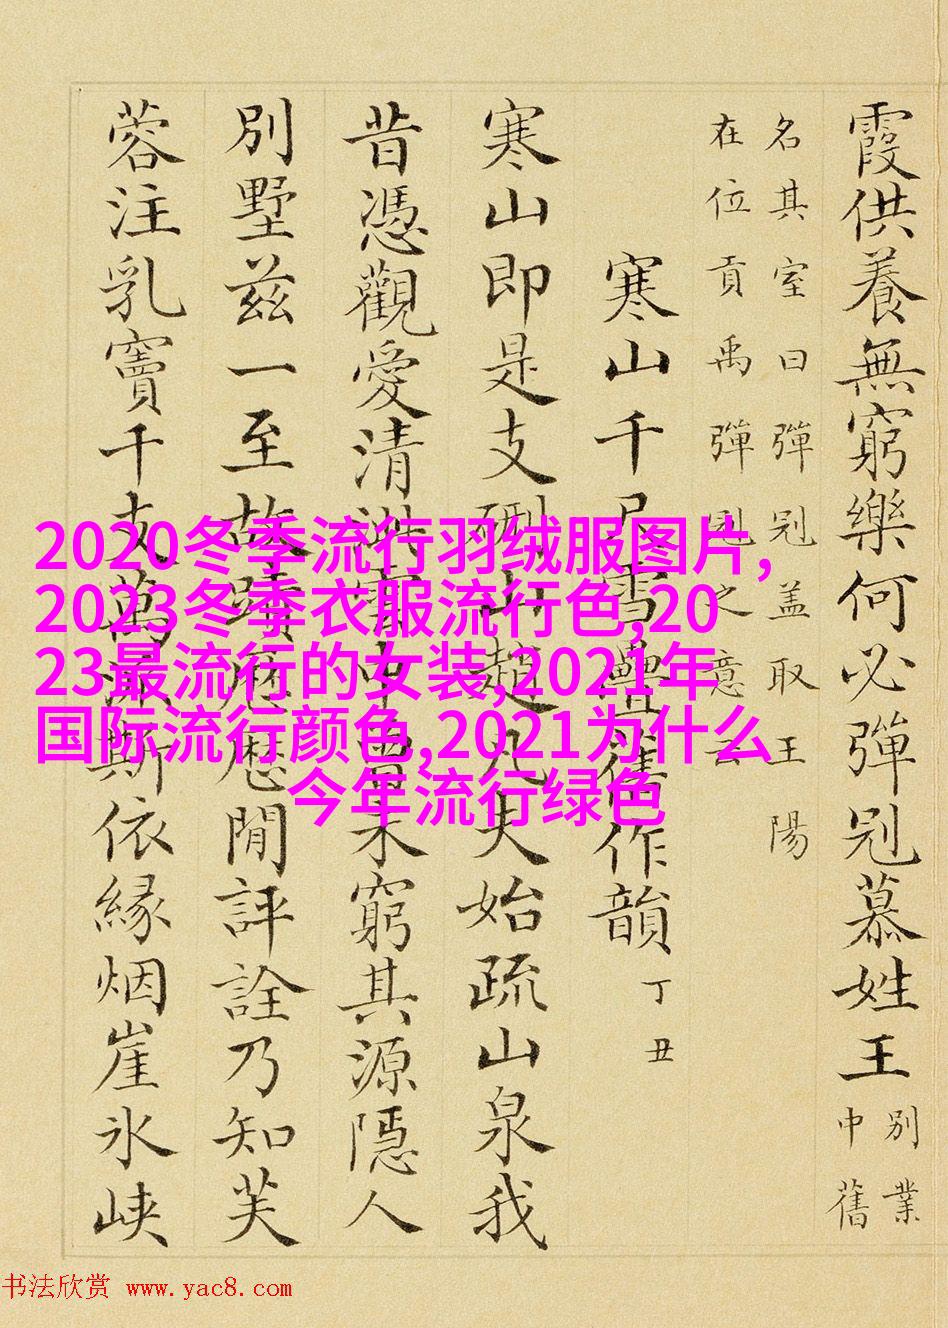 霞供養無窮樂何必彈冠慕姓王
別業
中舊
名其室曰彈冠蓋取王陽
在位貢禹彈冠之意云
寒山千尺雪疊舊作韻
丁丑
寒山即是支硎山趙凡夫始疏山泉我
昔憑觀愛清雪中曾未窮其源隱人
別墅茲一至故蹟歷歷閒評詮乃知芙
蓉注乳竇千支萬派斯依緣烟崖氷峽
2020冬季流行羽绒服图片,
2023冬季衣服流行色,20
23最流行的女装,2021年
国际流行颜色,2021为什么
今年流行绿色
书法欣赏 www.yac8.com